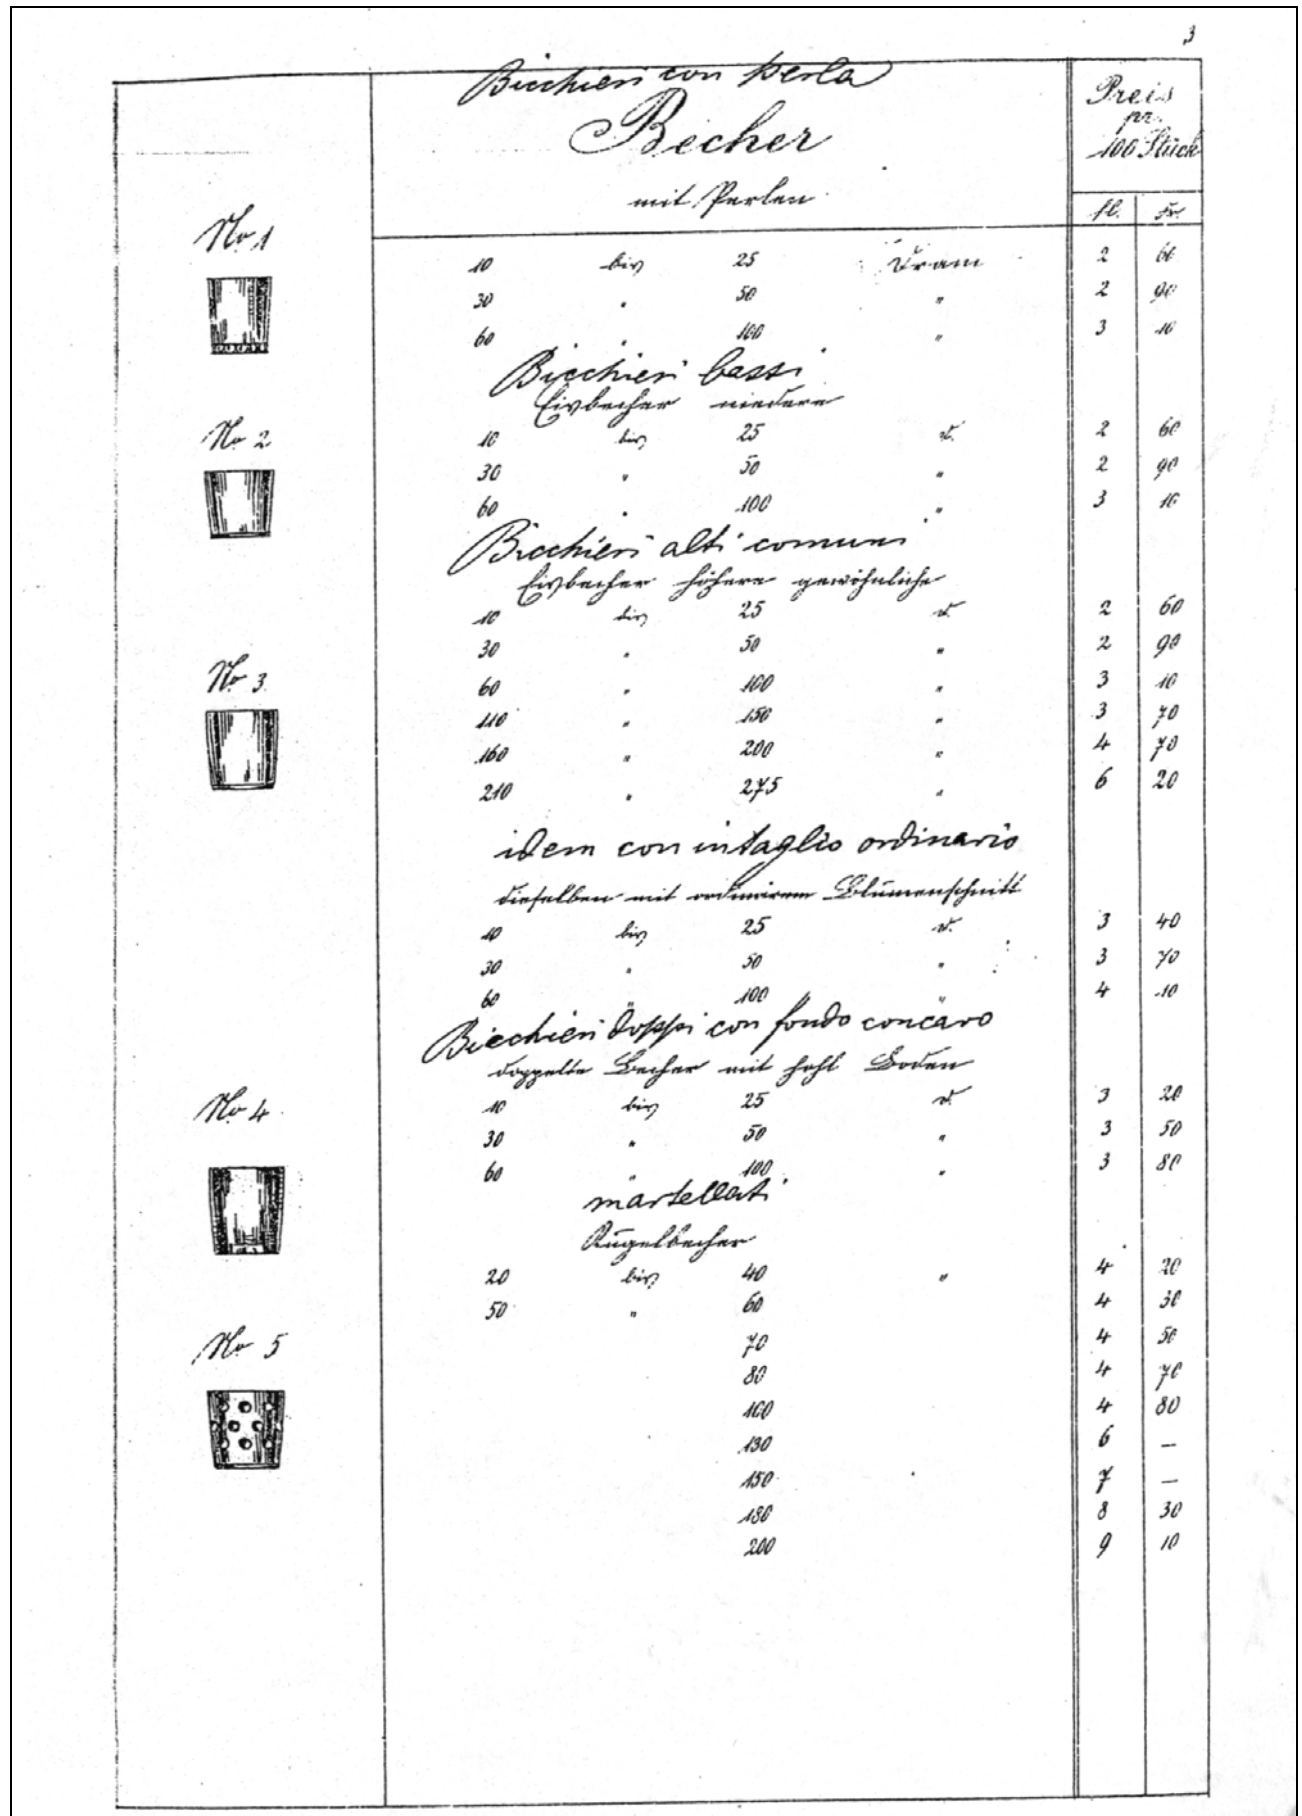 3
Bicchieri con perla
Becher
mit Perlen
Preis
pr.
100 Stück
fl. Kr.
No 1
10 bis 25 Dram 2 60
30 " 50 " 2 90
60 " 100 " 3 10
Bicchieri bassi
Eisbecher niedere
No 2
10 bis 25 d. 2 60
30 " 50 " 2 90
60 " 100 " 3 10
Bicchieri alti comuni
Eisbecher höhere gewöhnliche
10 bis 25 d. 2 60
30 " 50 " 2 90
No 3
60 " 100 " 3 10
110 " 150 " 3 70
160 " 200 " 4 70
210 " 275 " 6 20
idem con intaglio ordinario
dieselben mit ordinärem Blumenschnitt
10 bis 25 d. 3 40
30 " 50 " 3 70
60 " 100 " 4 10
Bicchieri doppi con fondo concavo
doppelte Becher mit hohl Boden
No 4
10 bis 25 d. 3 20
30 " 50 " 3 50
60 " 100 " 3 80
martellati
Kugelbecher
20 bis 40 " 4 20
50 " 60 4 30
No 5
70 4 50
80 4 70
100 4 80
130 6 —
150 7 —
180 8 30
200 9 10